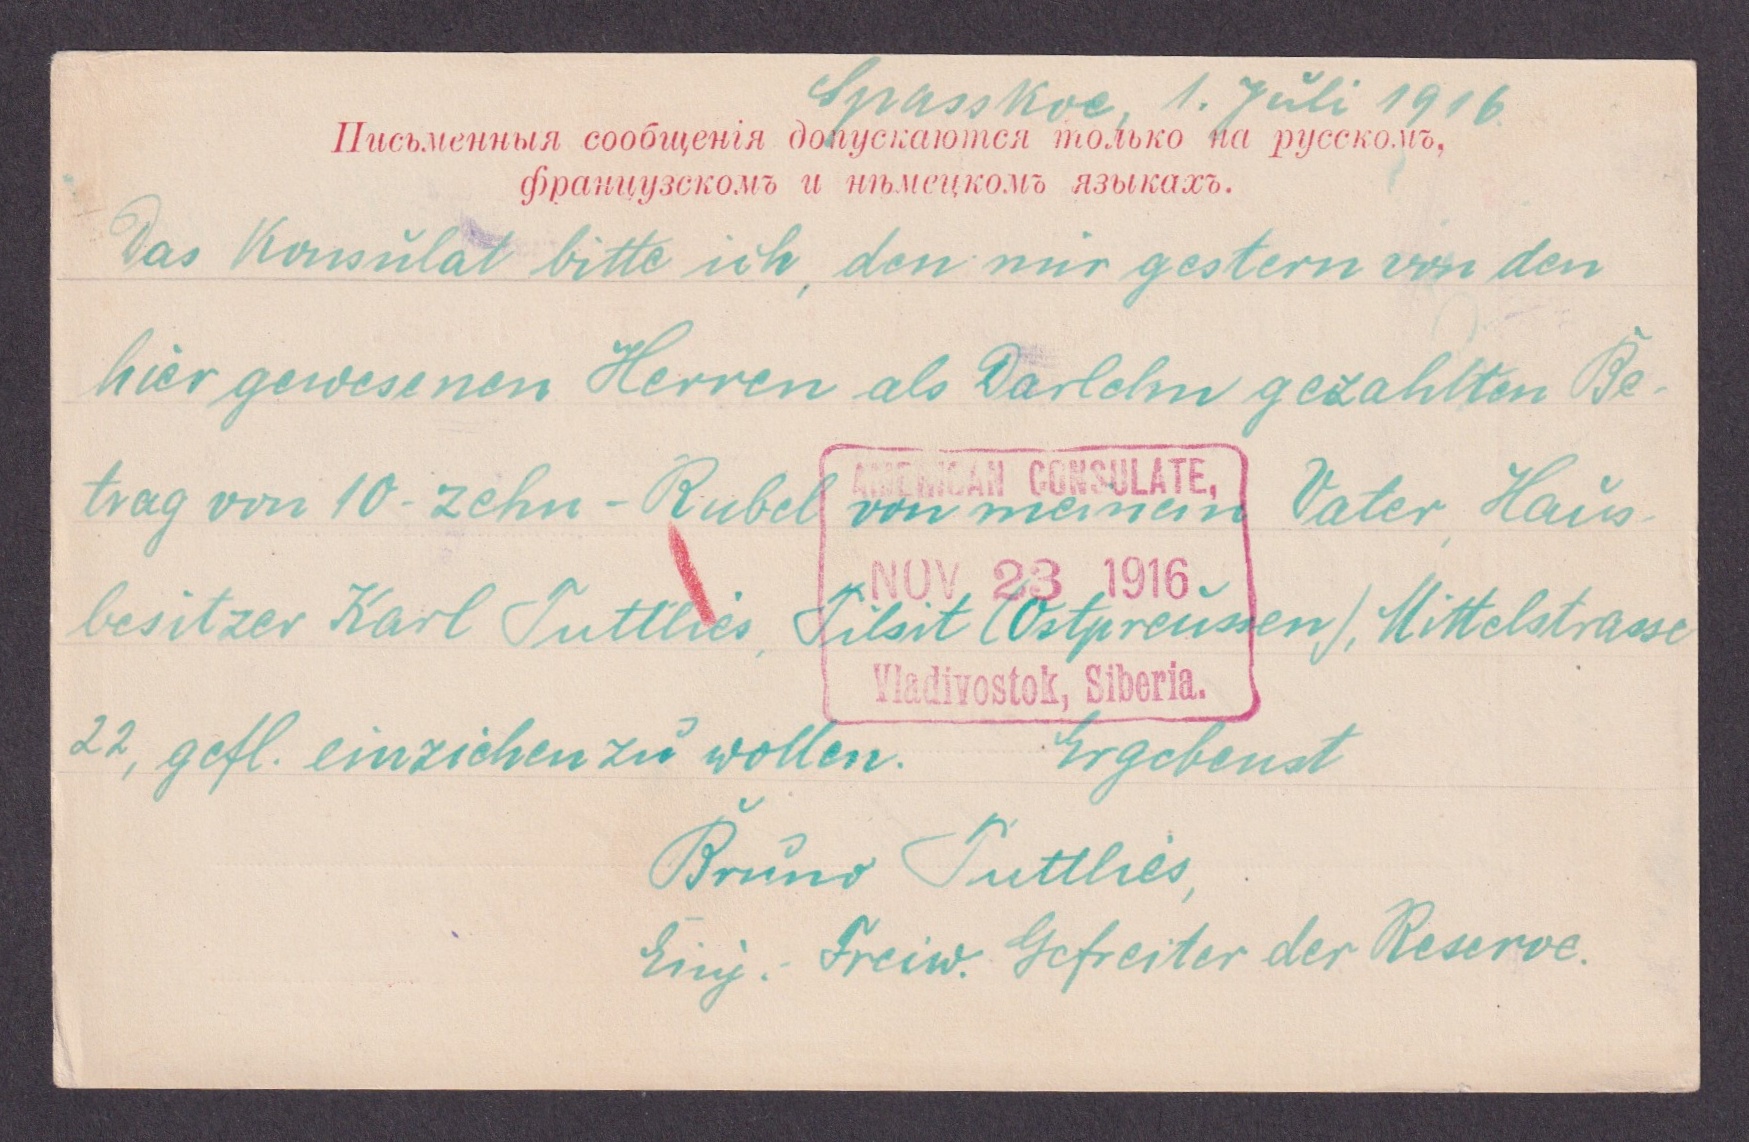 Spasskoe, 1. Juli 1916.
Письменныя сообщенія допускаются только на русскомъ,
французскомъ и нѣмецкомъ языкахъ.
Das Konsulat bitte ich, den mir gestern von den
hier gewesenen Herren als Darlehn gezahlten Be-
trag von 10 - zehn - Rubel von meinem Vater, Haus-
besitzer Karl Tuttlies, Tilsit (Ostpreussen), Mittelstrasse
22, gefl. einziehen zu wollen. Ergebenst
Bruno Tuttlies,
Einj.- Freiw. Gefreiter der Reserve.
AMERICAN CONSULATE,
NOV 23 1916
Vladivostok, Siberia.